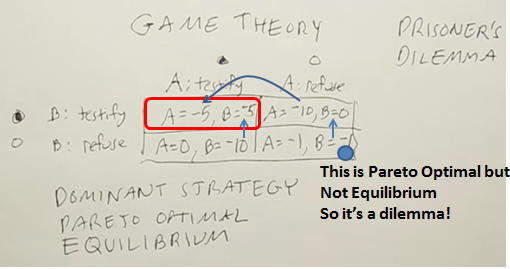 GAME THEORY
PRISONER'S
DILEMMA
A: testify A: refuse
B: testify A=-5, B=-5 A=-10, B=0
B: refuse A=0, B=-10 A=-1, B=-1
This is Pareto Optimal but
Not Equilibrium
So it's a dilemma!
DOMINANT STRATEGY
PARETO OPTIMAL
EQUILIBRIUM